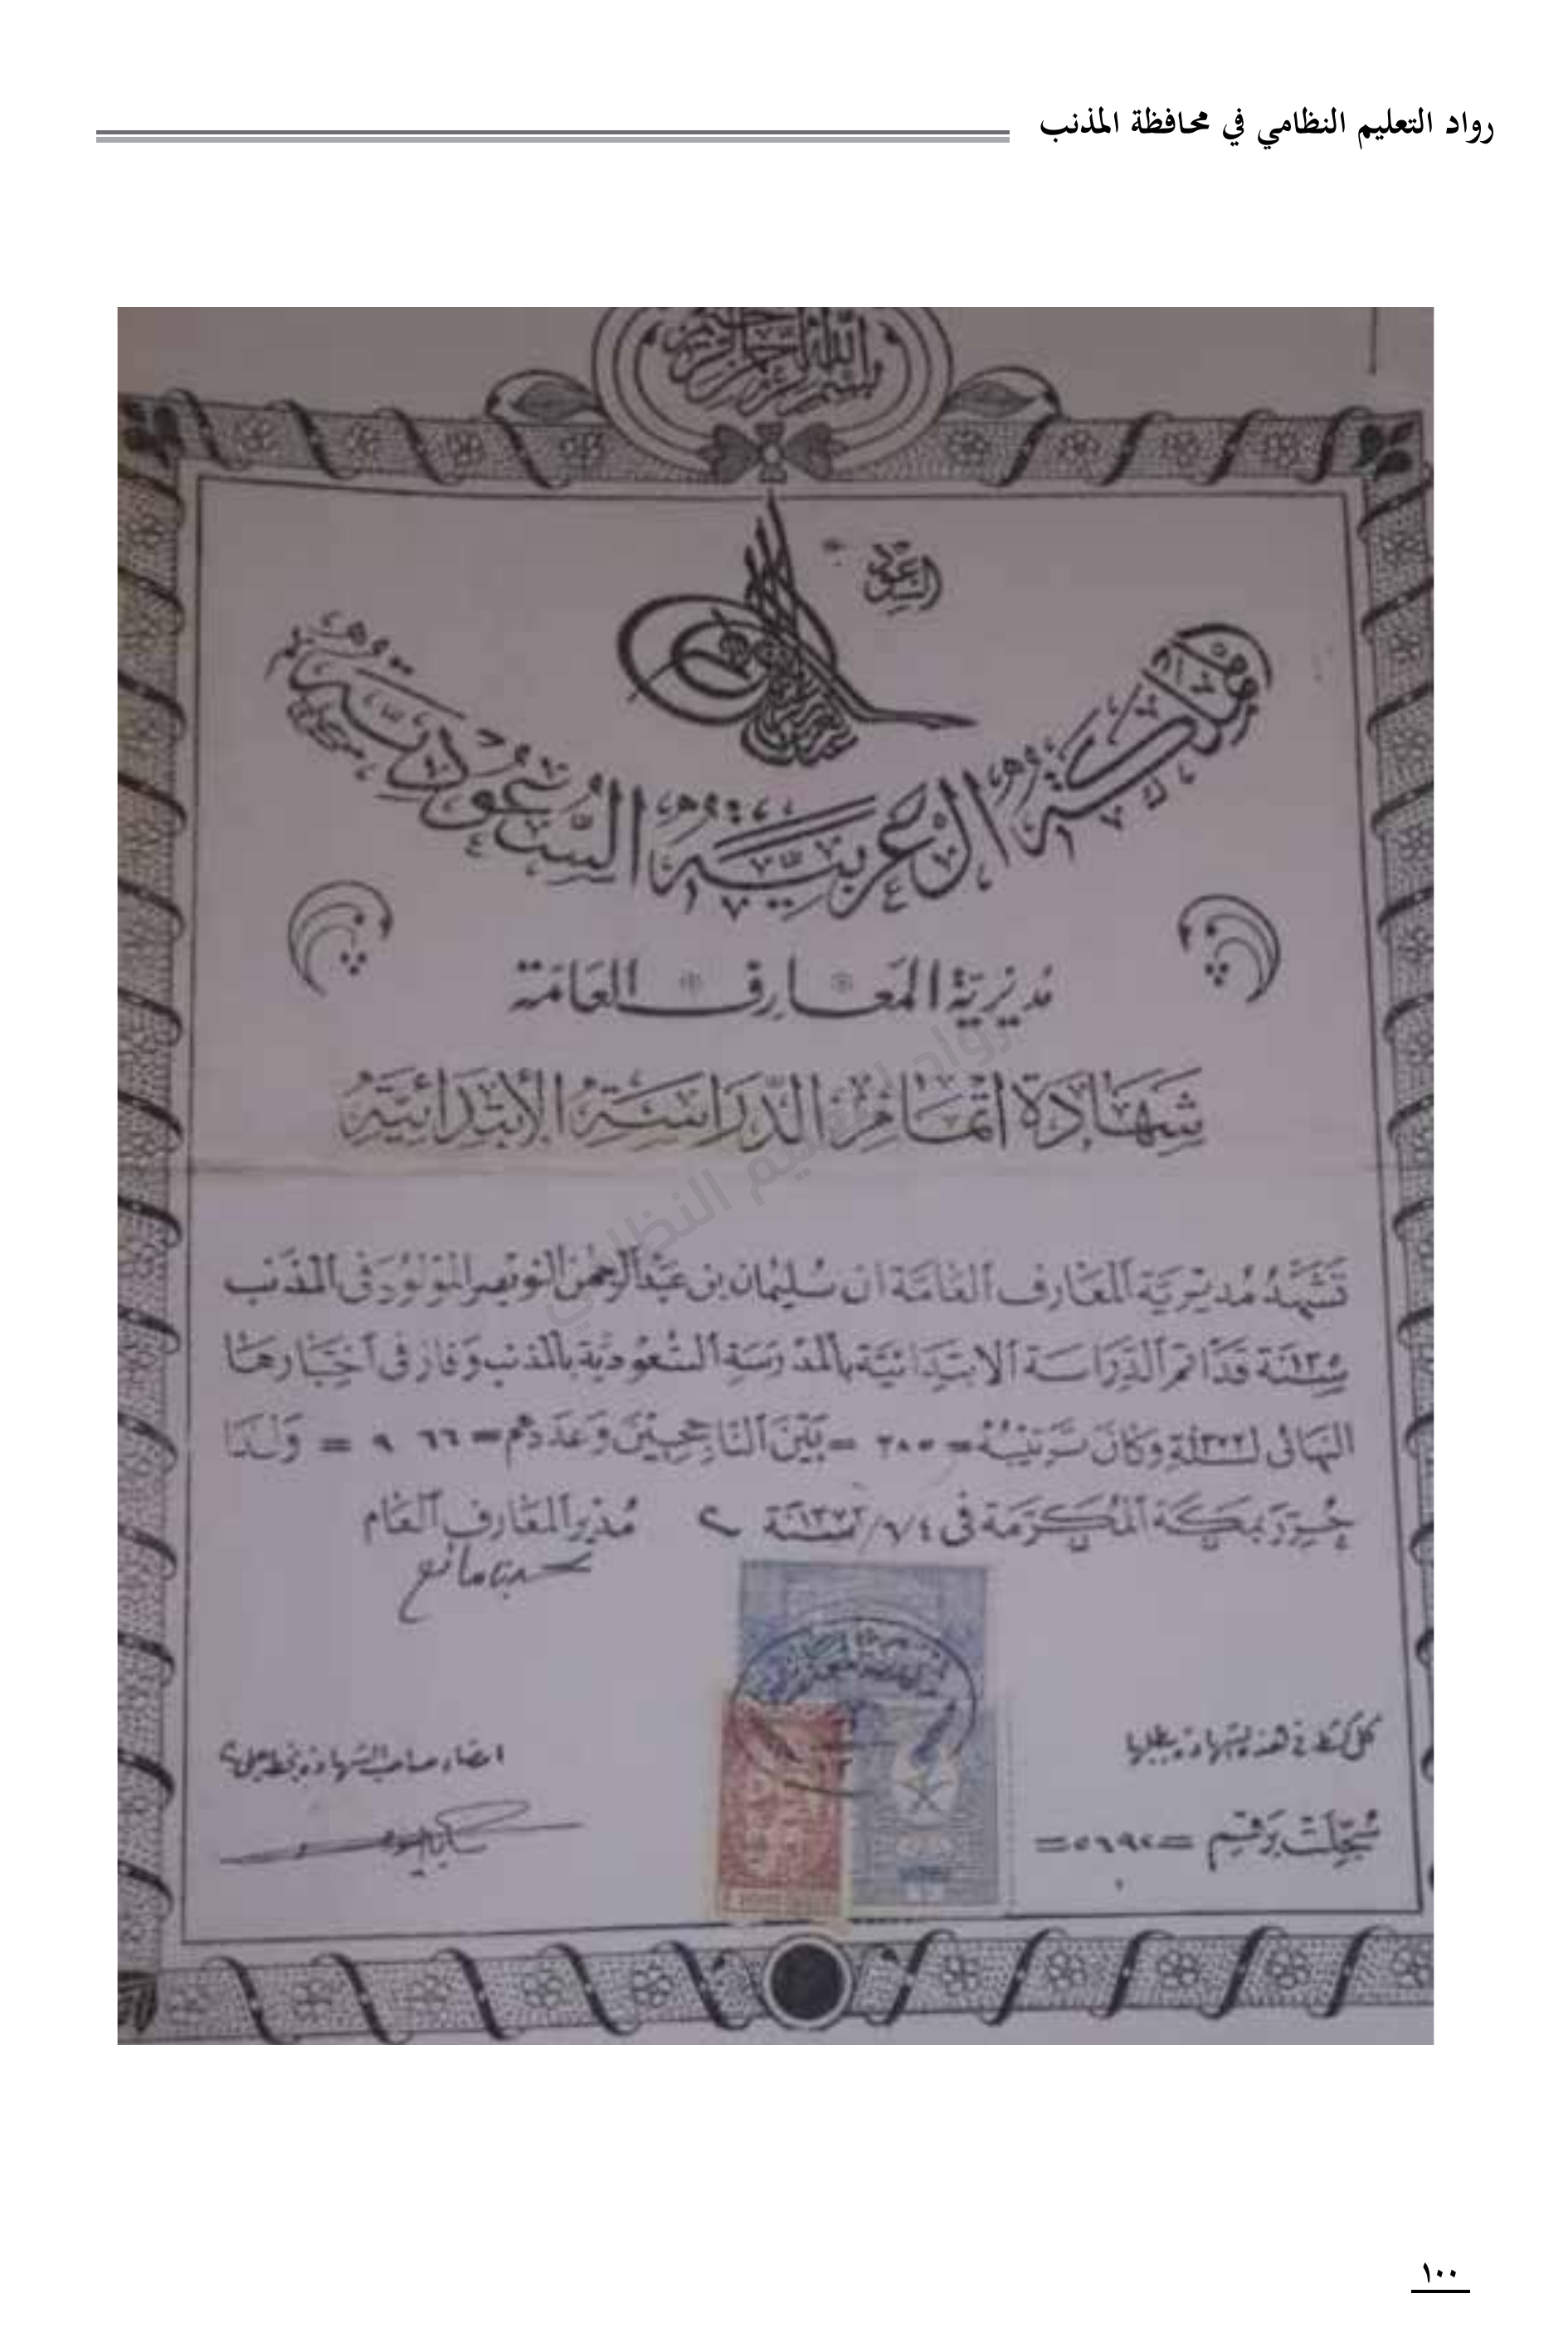 رواد التعليم النظامي في محافظة المذنب
بسم الله الرحمن الرحيم
المملكة العربية السعودية
مديرية المعارف العامة
شهادة اتمام الدراسة الابتدائية
تشهد مديرية المعارف العامة ان سليمان بن عبد الرحمن النويصر المولود في المذنب
سنة قد أتم الدراسة الابتدائية بالمدرسة السعودية بالمذنب وفاز في اختبارها
النهائي لسنة وكان ترتيبه = ٣٨٥ = بين الناجحين وعددهم = ٩٦٦ = ولدا
حرر بمكة المكرمة في سنة مدير المعارف العام
كل كشط في هذه الشهادة يبطلها
امضاء صاحب الشهادة بخط يده
سجلت برقم = ٥٦٩٢ =
رواد التعليم النظامي
١٠٠